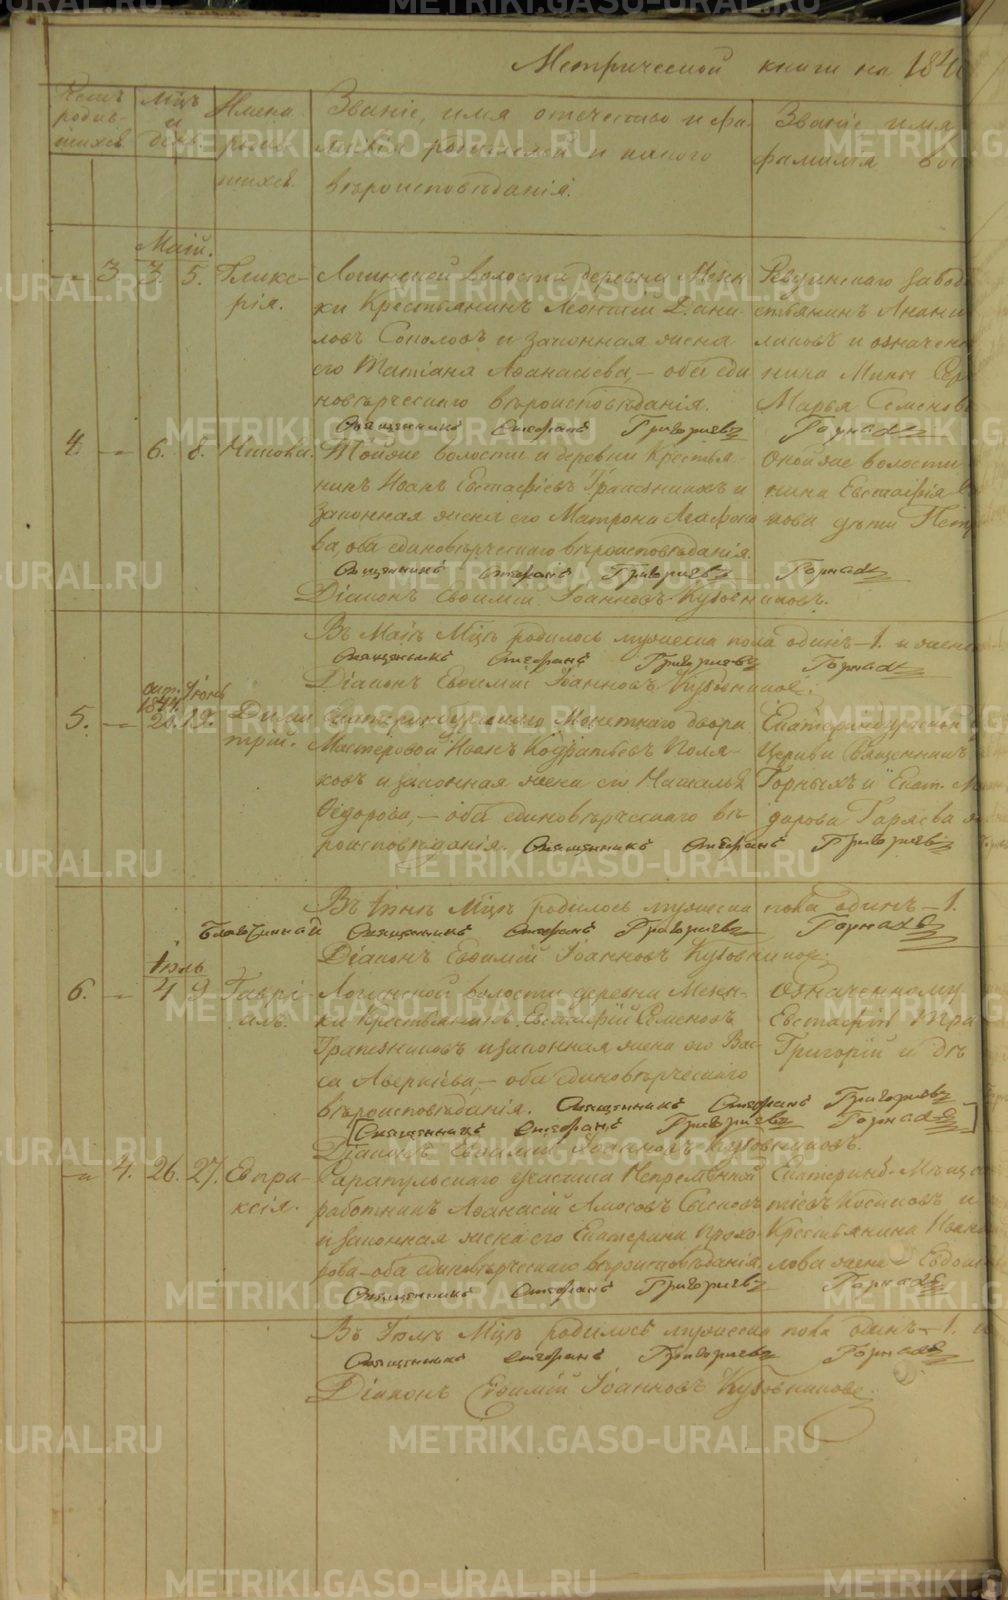 Метрической книги на 184
Счетъ родив-шихся
Мцъ и день
Имена родив-шихся.
Званіе, имя отечество и фа-
милія родителей и какого
вѣроисповѣданія.
Званіе имя
фамилія вос
Май.
3 3. 5. Глике-рія.
Логиновой волости деревни Мезен-
ки Крестьянинъ Леонтій Дани-
ловъ Соколовъ и законная жена
его Татіана Аѳанасьева, — оба еди
новѣрческаго вѣроисповѣданія.
Священникъ Стефанъ Григорьевъ Горныхъ
Ревдинскаго завод
стьянинъ Анани
линовъ и означен
нина Мины Сер
Марья Семенов
4. 6. 8.
Тойже волости и деревни Крестья-
нинъ Иванъ Евстафіевъ Трапезниковъ и
законная жена его Матрона Агафоно-
ва, оба единовѣрческаго вѣроисповѣданія.
Священникъ Стефанъ Григорьевъ Горныхъ
Діаконъ Евѳимій Іоанновъ Кубовниковъ.
Онойже волости
нина Евстафія
нова дѣти Петр
Въ Маѣ Мцѣ родилось мужеска пола одинъ — 1. и женск
Священникъ Стефанъ Григорьевъ Горныхъ
Діаконъ Евѳимій Іоанновъ Кубовниковъ.
Іюнь
5. Дими-трій.
Екатеринбургскаго Монетнаго двора
Мастеровой Иванъ Кодратьевъ Поля-
ковъ и законная жена его Наталья
Ѳедорова, — оба единовѣрческаго вѣ-
роисповѣданія. Священникъ Стефанъ Григорьевъ
Екатеринбургской
Церкви Священникъ
Горныхъ и Екат. М
дорова Гаряева
Въ Іюнѣ Мцѣ родилось мужеска пола одинъ — 1.
Благочинный Священникъ Стефанъ Григорьевъ Горныхъ
Діаконъ Евѳимій Іоанновъ Кубовниковъ.
Іюль
6. 4 9 Гаврі-илъ.
Логиновой волости деревни Мезен-
ки Крестьянинъ Евстафій Семеновъ
Трапезниковъ и законная жена его Вас-
са Аверкіева, — оба единовѣрческаго
вѣроисповѣданія. Священникъ Стефанъ Григорьевъ
[Священникъ Стефанъ Григорьевъ Горныхъ]
Діаконъ Евѳимій Іоанновъ Кубовниковъ.
Означенному
Евстафію Тра
Григорій и дѣ
4. 26. 27. Евпра-ксія.
Сарапульскаго участка Непремѣнный
работникъ Аѳанасій Амосовъ Сысковъ
и законная жена его Екатерина Прохо-
рова — оба единовѣрческаго вѣроисповѣданія
Священникъ Стефанъ Григорьевъ Горныхъ
Екатеринб. Мѣщ
Крестьянина Иван
лова жена Евдок
Въ Іюлѣ Мцѣ родилось мужеска пола одинъ — 1. и
Священникъ Стефанъ Григорьевъ Горныхъ
Діаконъ Евѳимій Іоанновъ Кубовниковъ.
METRIKI.GASO-URAL.RU